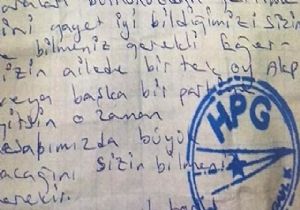 ini gayet iyi bildiğimizi sizin
e bilmeniz gerekli Eğer
izin ailede bir tek oy AKP
veya başka bir partiye
girsin o zaman
hesabımızda büyük
acağını sizin bilmeniz
gerekir.
HPG